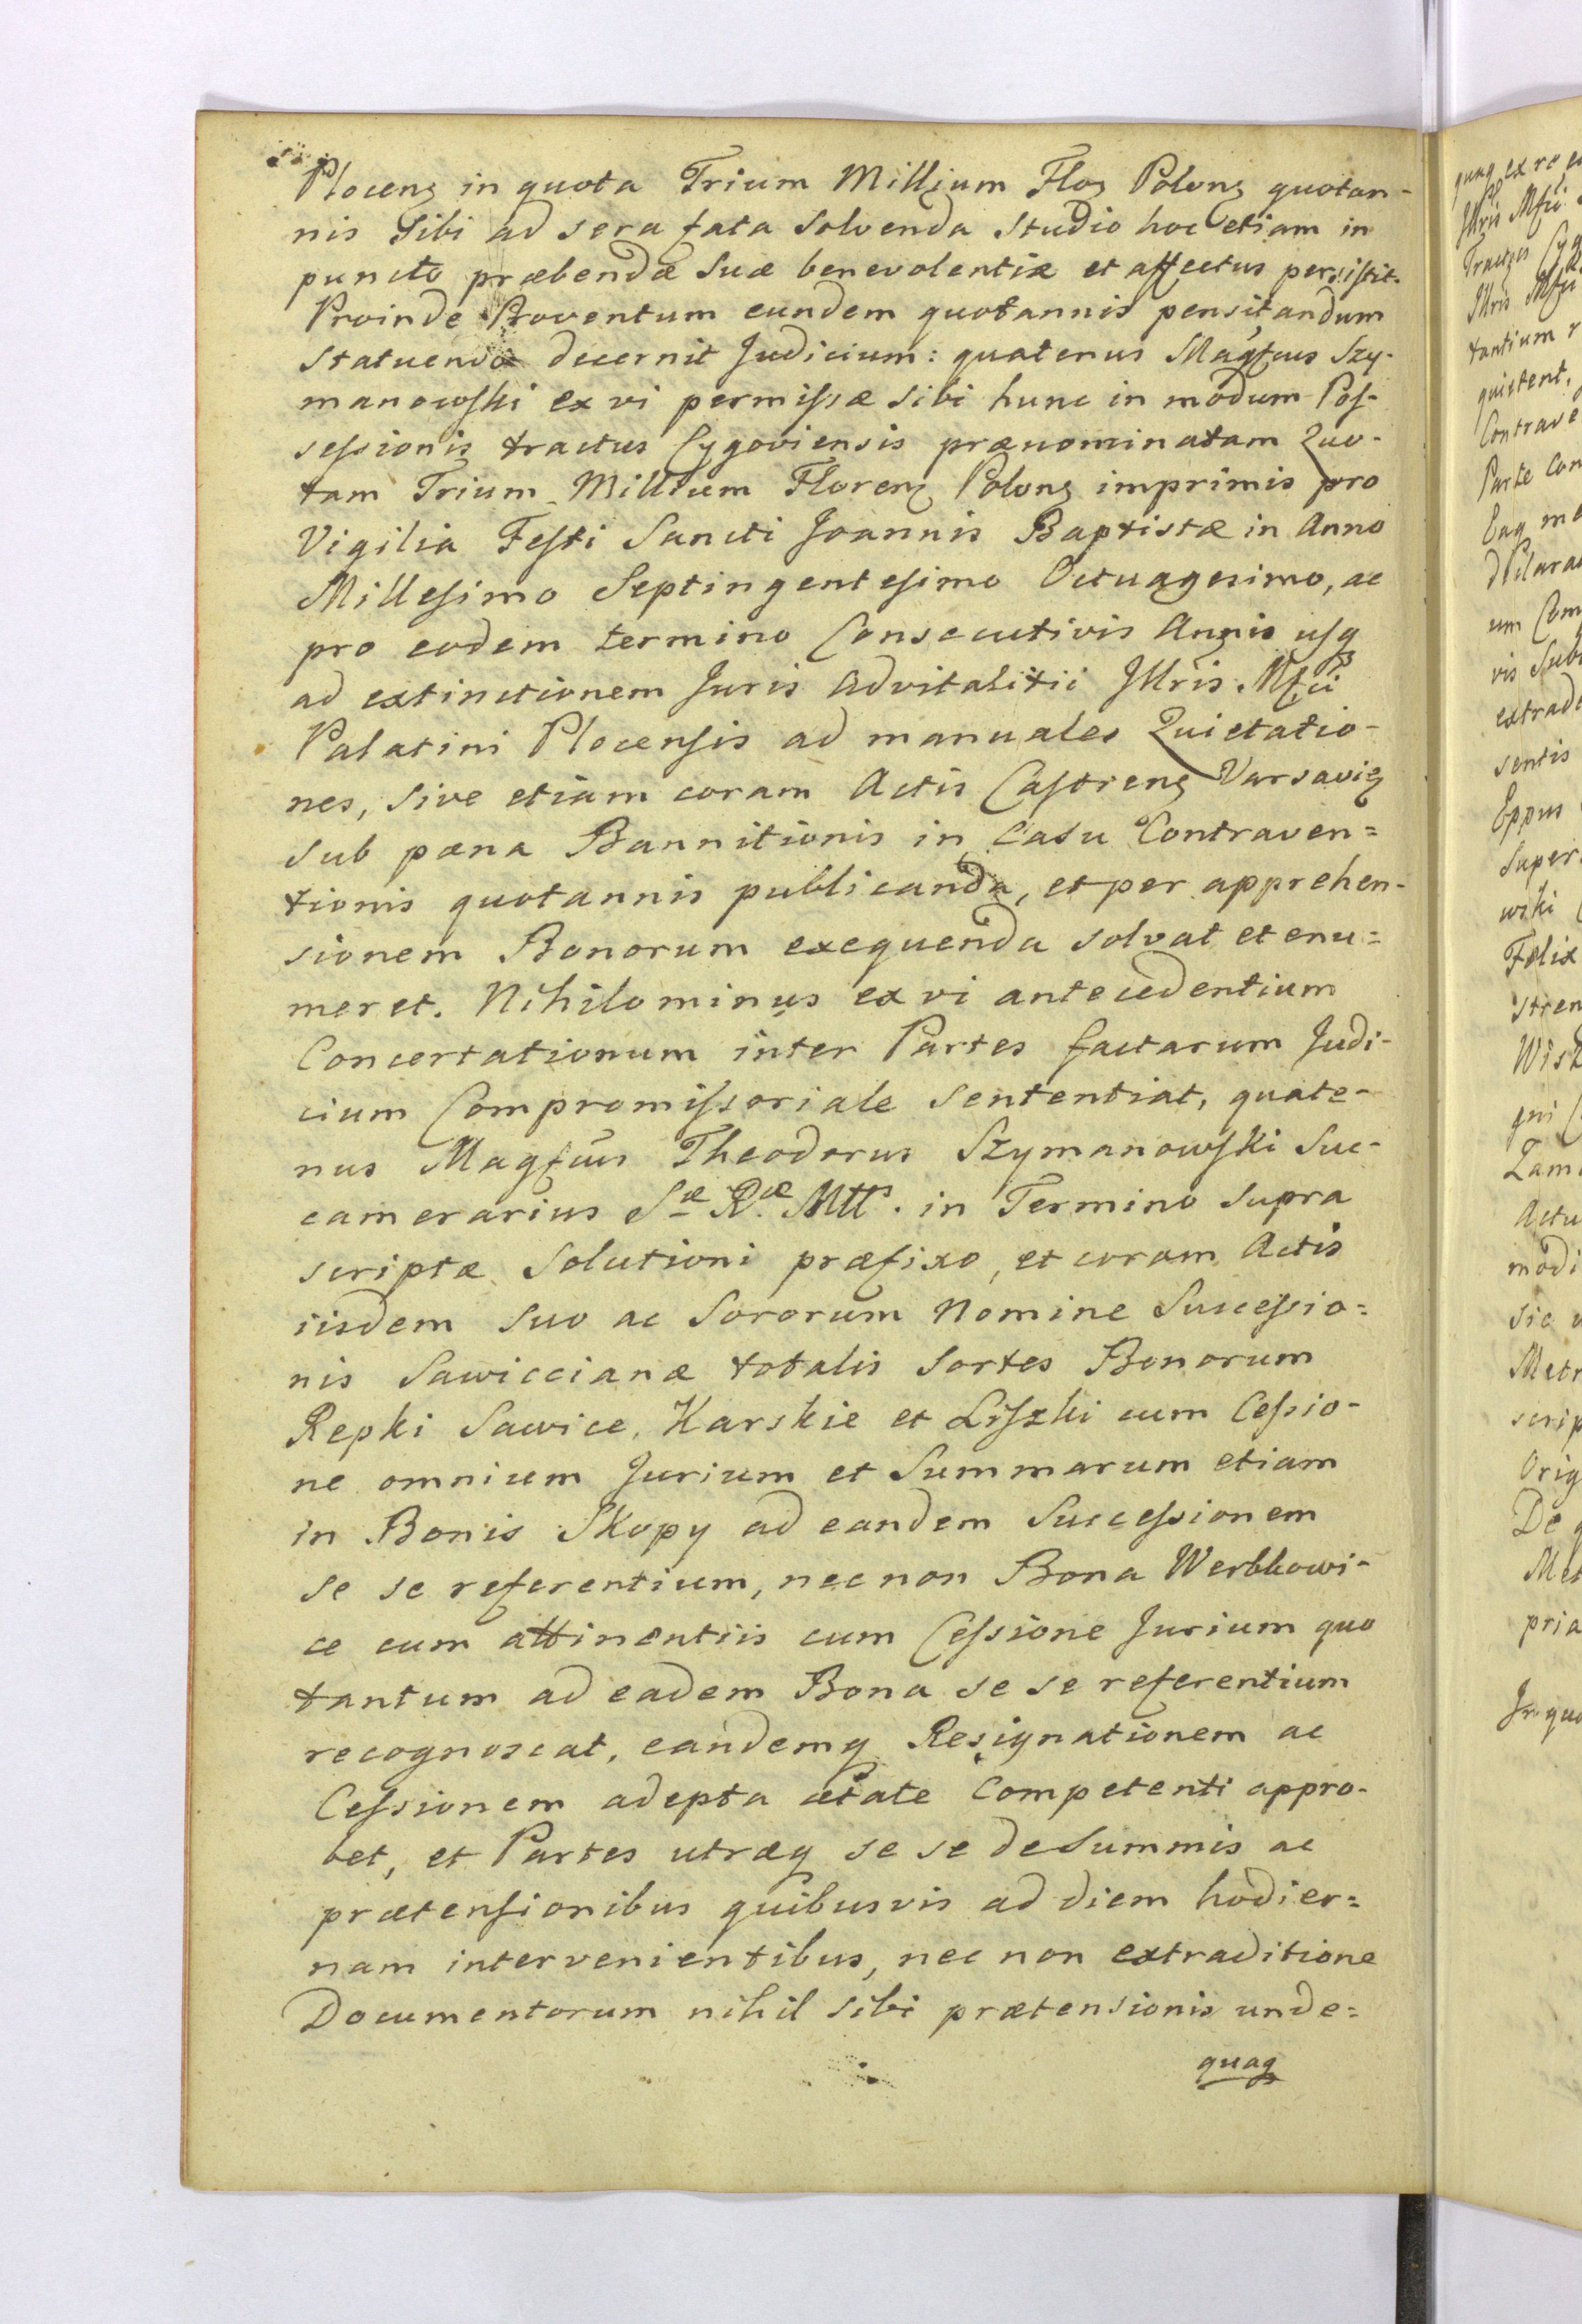 Plocenȝ in quota Trium Millium Floȝ Polonȝ quotan-
nis Sibi ad sera fata solvenda studio hoc etiam in
puncto præbendæ suæ benevolentiæ et affectus persistit.
Proinde Proventum eundem quotannis pensitandum
statuendo decernit Judicium: quatenus Magfcus Szy-
manowski ex vi permissæ sibi hunc in modum Pos-
sessionis tractus Cygoviensis prænominatam Quo-
tam Trium Millium Florenȝ Polonȝ imprimis pro
Vigilia Festi Sancti Joannis Baptistæ in Anno
Millesimo Septingentesimo Octuagesimo, ac
pro eodem termino Consecutivis Annis usq
ad extinctionem Juris Advitalitii Jllris Mfci
Palatini Plocensis ad manuales Quietatio-
nes, sive etiam coram Actis Castrenȝ Varsavię
sub pæna Bannitionis in Casu Contraven=
tionis quotannis publicanda, et per apprehen-
sionem Bonorum exequenda solvat et enu=
meret. Nihilominus ex vi antecedentium
Concertationum inter Partes factarum Judi-
cium Compromissoriale sententiat, quate-
nus Magfcus Theodorus Szymanowski Suc-
camerarius Sæ Ræ Mtts. in Termino supra
scriptæ solutioni præfixo, et coram Actis
iisdem suo ac Sororum Nomine Successio=
nis Sawiccianæ totalis sortes Bonorum
Repki Sawice, Karskie et Liszki cum Cessio-
ne omnium Jurium et Summarum etiam
in Bonis Skopy ad eandem Successionem
se se referentium, nec non Bona Werbkowi-
ce cum attinentiis cum Cessione Jurium quo
tantum ad eadem Bona se se referentium
recognoscat, eandemq Resignationem ac
Cessionem adepta ætate Competenti appro-
bet, et Partes utræq se se de Summis ac
prætensionibus quibusvis ad diem hodier=
nam intervenientibus, nec non extraditione
Documentorum nihil sibi prætensionis unde=
quaq